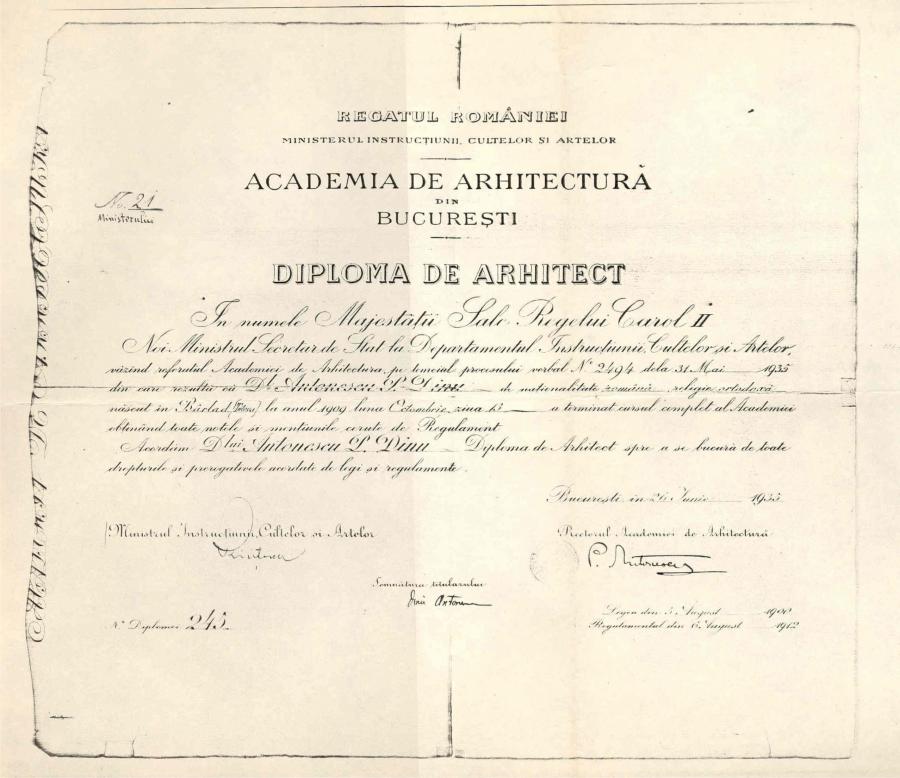 REGATUL ROMÂNIEI
MINISTERUL INSTRUCȚIUNII, CULTELOR SI ARTELOR
ACADEMIA DE ARHITECTURĂ
DIN
BUCUREȘTI
No. 21
Ministerului
DIPLOMA DE ARHITECT
In numele Majestății Sale Regelui Carol II
Noi Ministrul Secretar de Stat la Departamentul Instrucțiunii, Cultelor și Artelor,
văzind referatul Academiei de Arhitectura, pe temeiul procesului verbal No 2494 dela 31 Mai 1935
din care rezultă că Dl Antonescu P. Dinu de naționalitate română religie ortodoxă
născut in Bârlad la anul 1909 luna Octombrie ziua 13 a terminat cursul complet al Academiei
obtinând toate notele si mentiunile cerute de Regulament
Acordăm Dlui Antonescu P. Dinu Diploma de Arhitect spre a se bucură de toate
drepturile si prerogativele acordate de legi si regulamente.
Bucuresti in 26 Iunie 1935
Ministrul Instrucțiunii, Cultelor si Artelor
Rectorul Academiei de Arhitectură
P. Antonescu
Semnătura titularului
Dinu Antonescu
No Diplomei 245
Legea din August
Regulamentul din August 1912